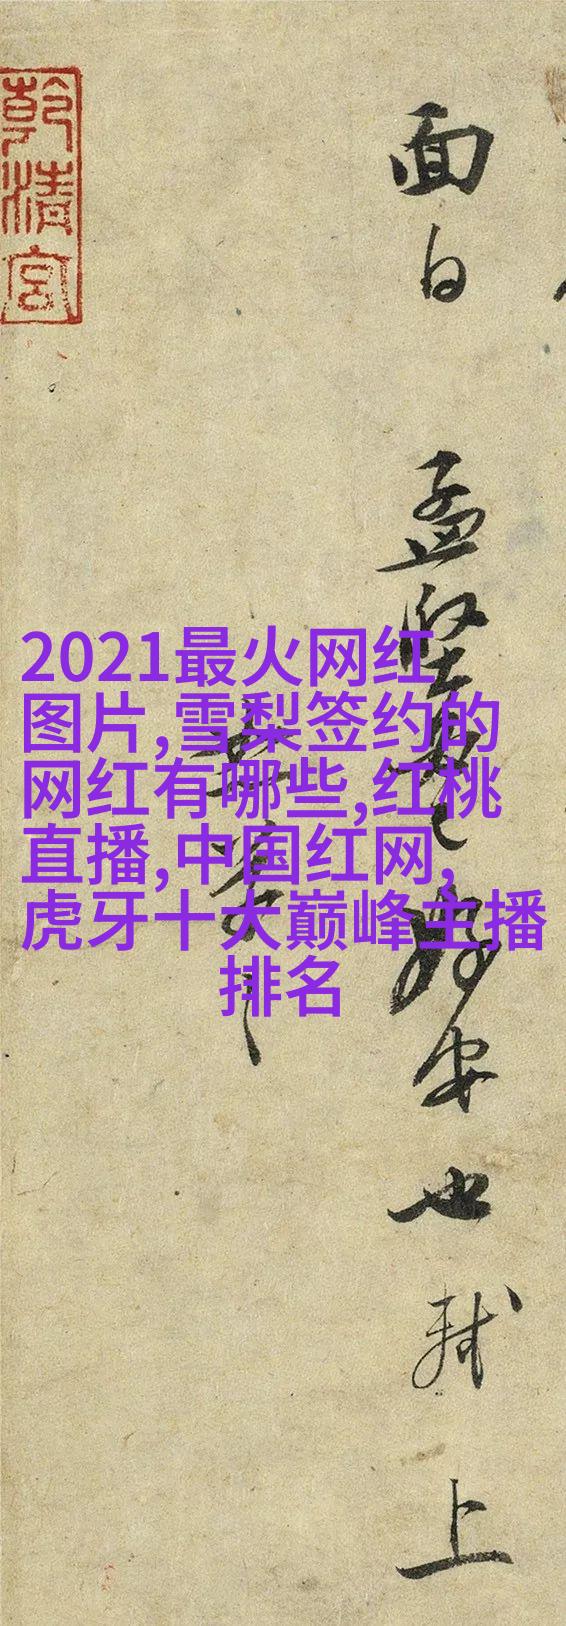 乾清宮
面白 孟堅 安也 軾 上
2021最火网红
图片,雪梨签约的
网红有哪些,红桃
直播,中国红网,
虎牙十大巅峰主播
排名